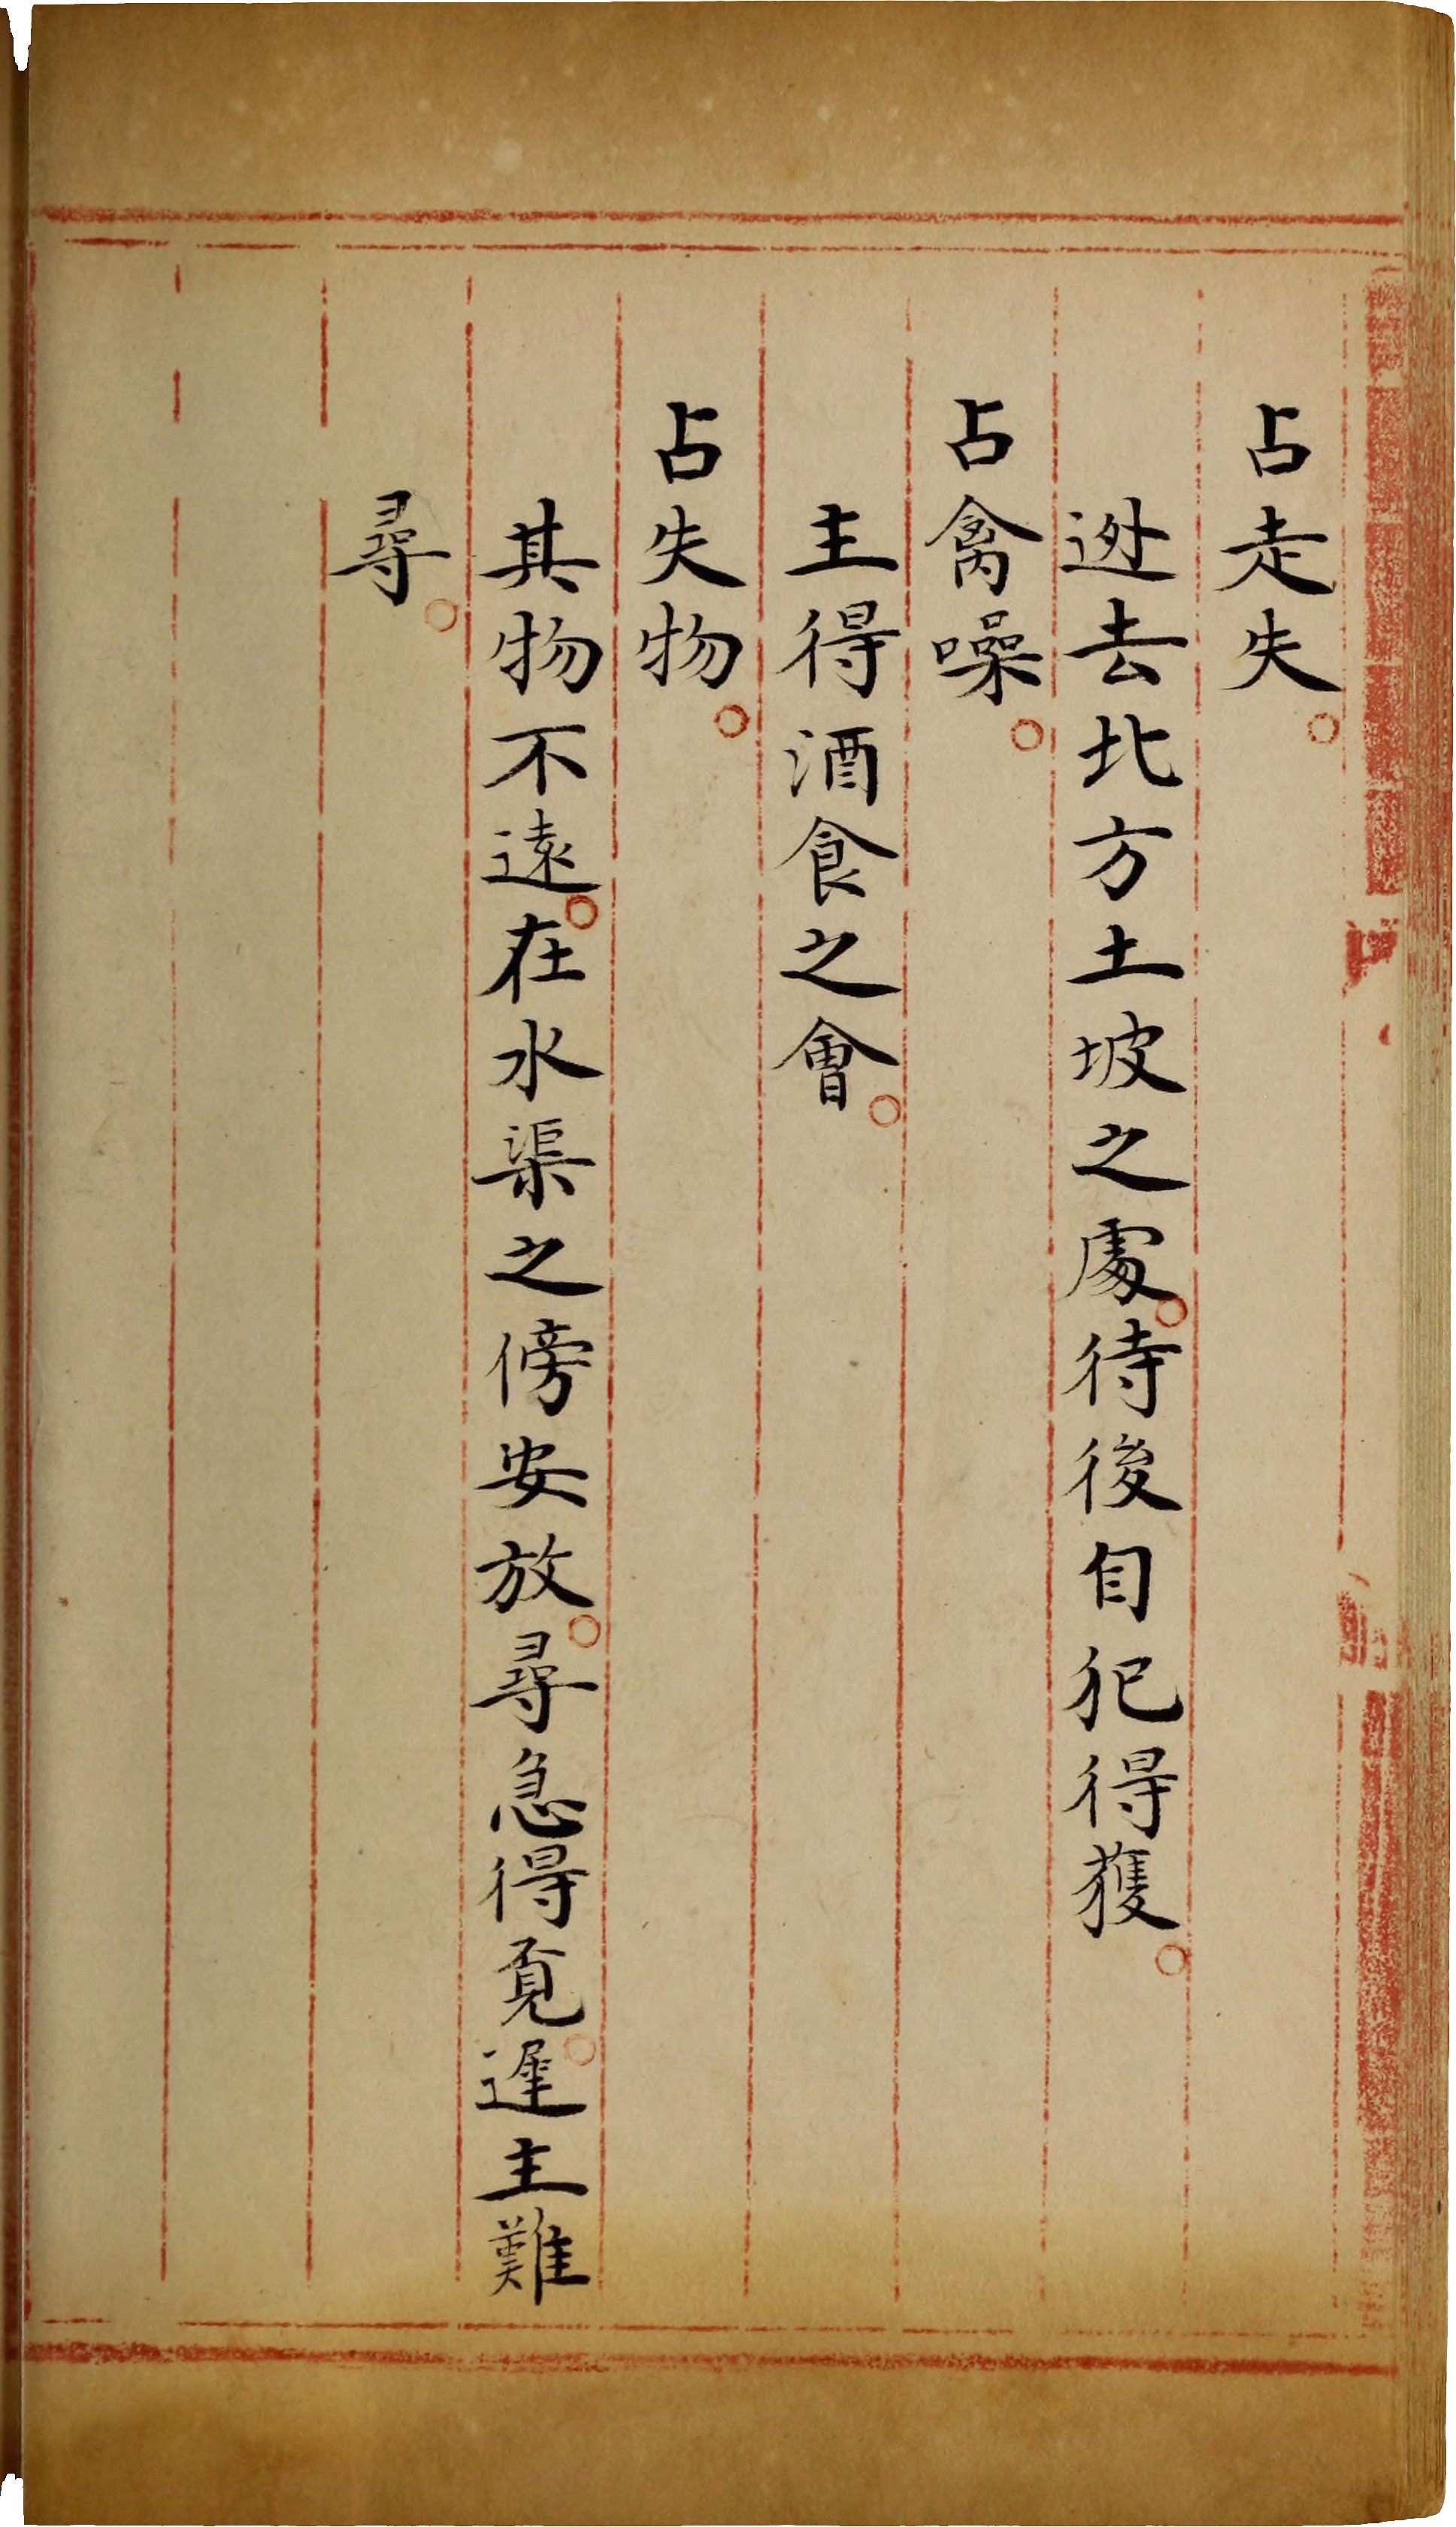 占走失。
迯去北方土坡之處。待後自犯得獲。
占禽噪。
主得酒食之會。
占失物。
其物不遠。在水渠之傍安放。尋急得覔。遲主難
尋。